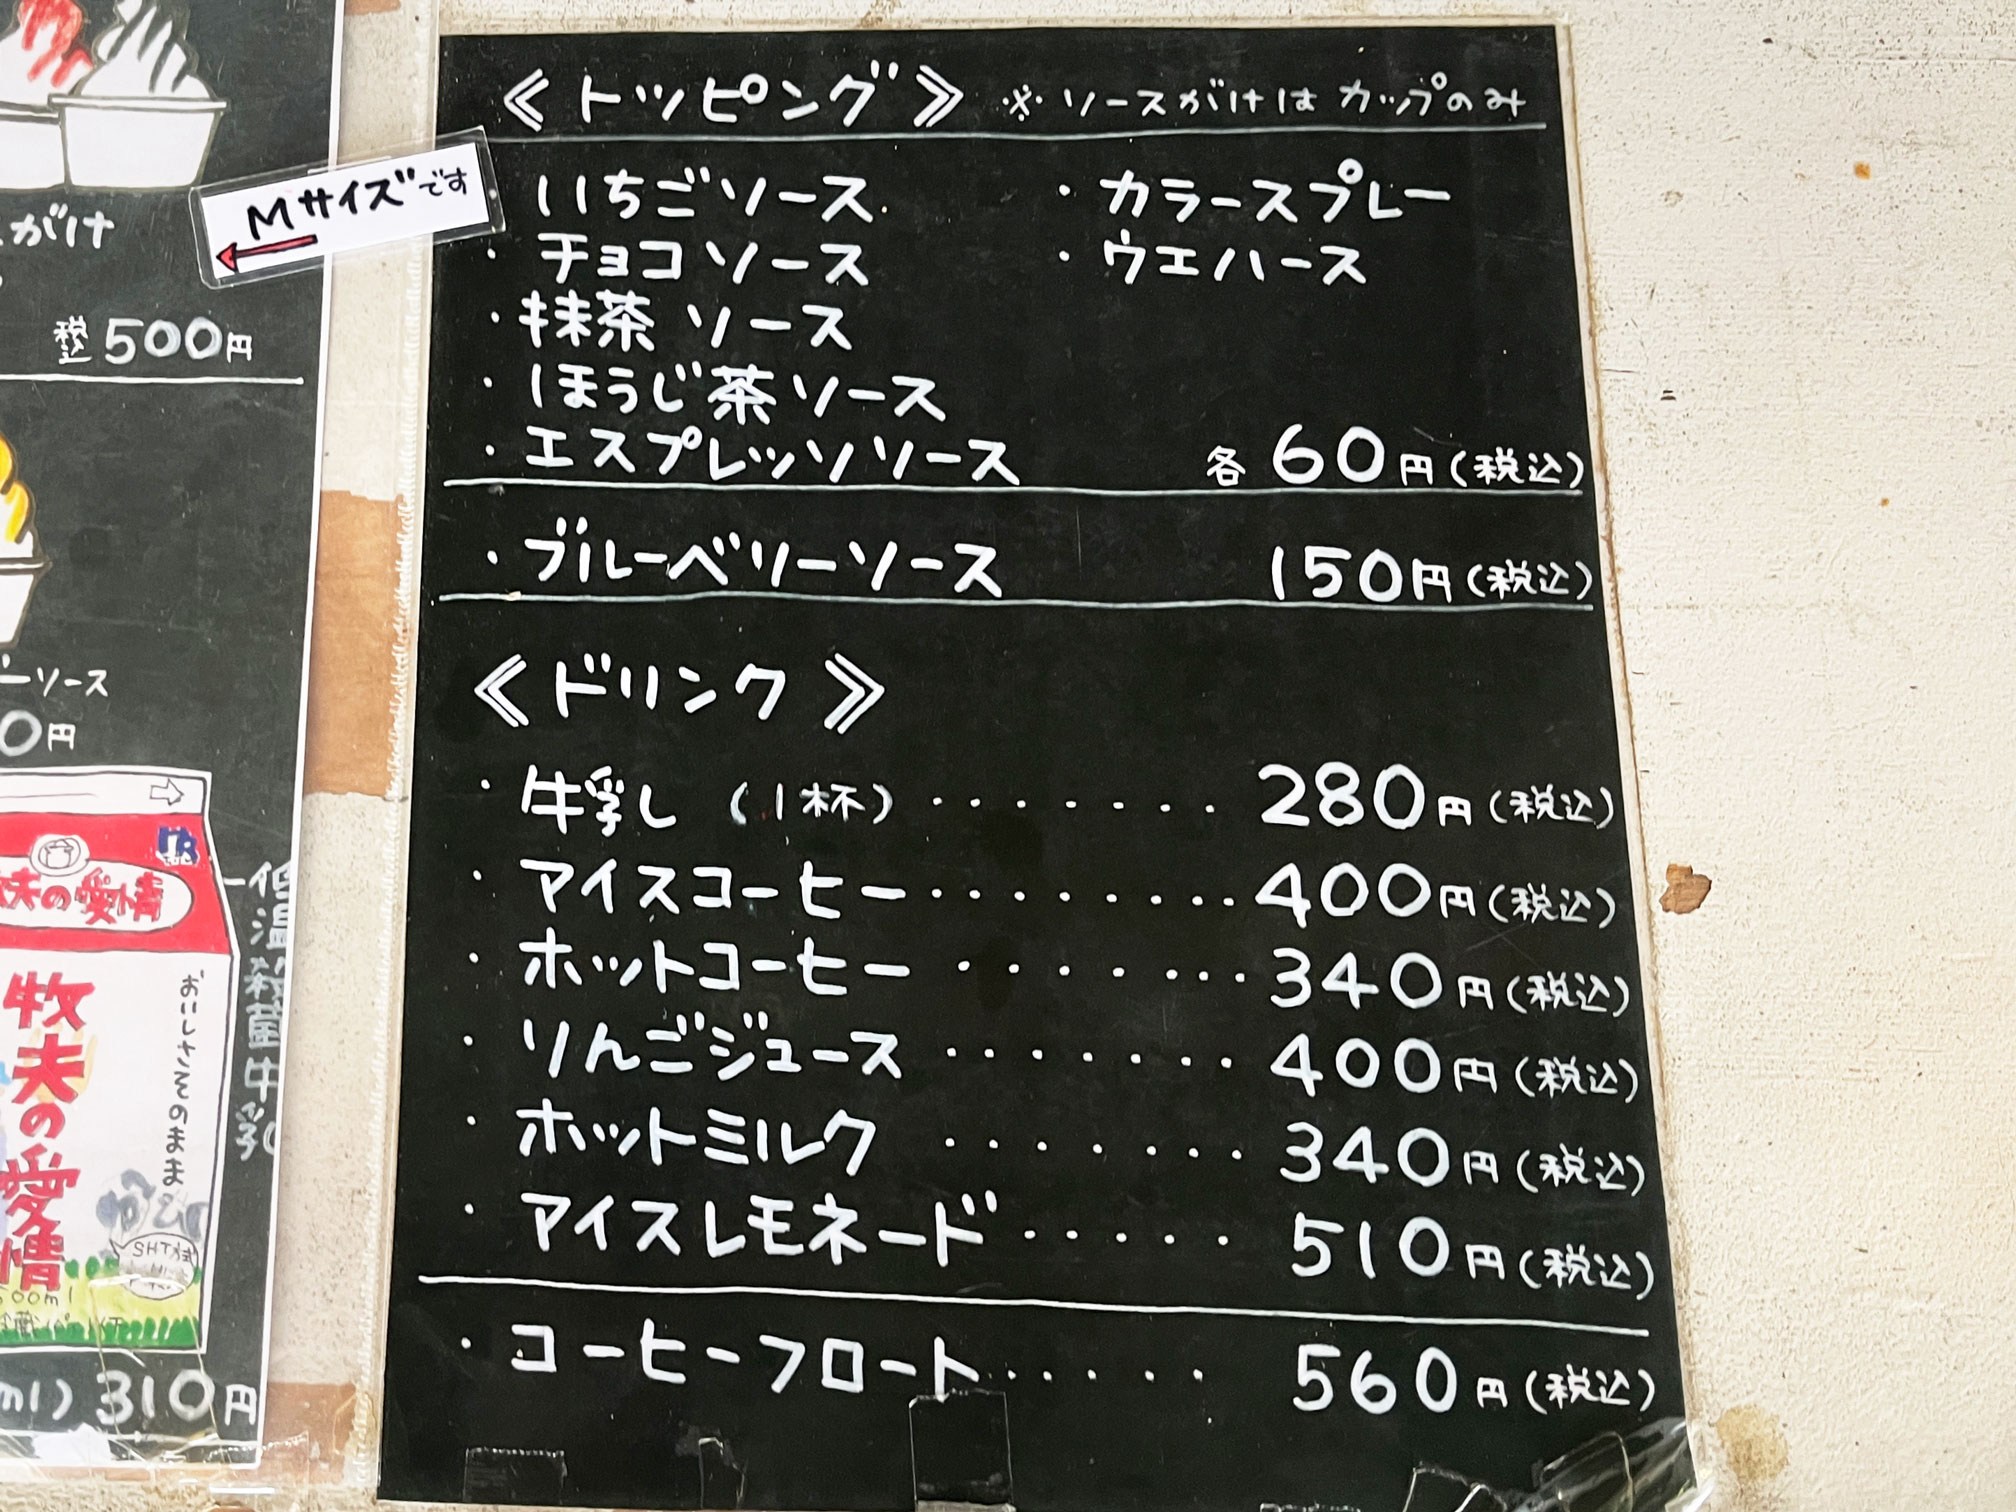 がけ
税込500円
Mサイズです
ーソース
0円
牧夫の愛情
おいしさそのまま
低温殺菌牛乳
310円
《トッピング》 ※ソースがけはカップのみ
いちごソース ・カラースプレー
・チョコソース ・ウエハース
・抹茶ソース
・ほうじ茶ソース
・エスプレッソソース 各60円(税込)
・ブルーベリーソース 150円(税込)
《ドリンク》
・牛乳(1杯)・・・・・・・280円(税込)
・アイスコーヒー・・・・・・・・400円(税込)
・ホットコーヒー・・・・・・・340円(税込)
・りんごジュース・・・・・・・400円(税込)
・ホットミルク・・・・・・・340円(税込)
・アイスレモネード・・・・・510円(税込)
・コーヒーフロート・・・・・560円(税込)